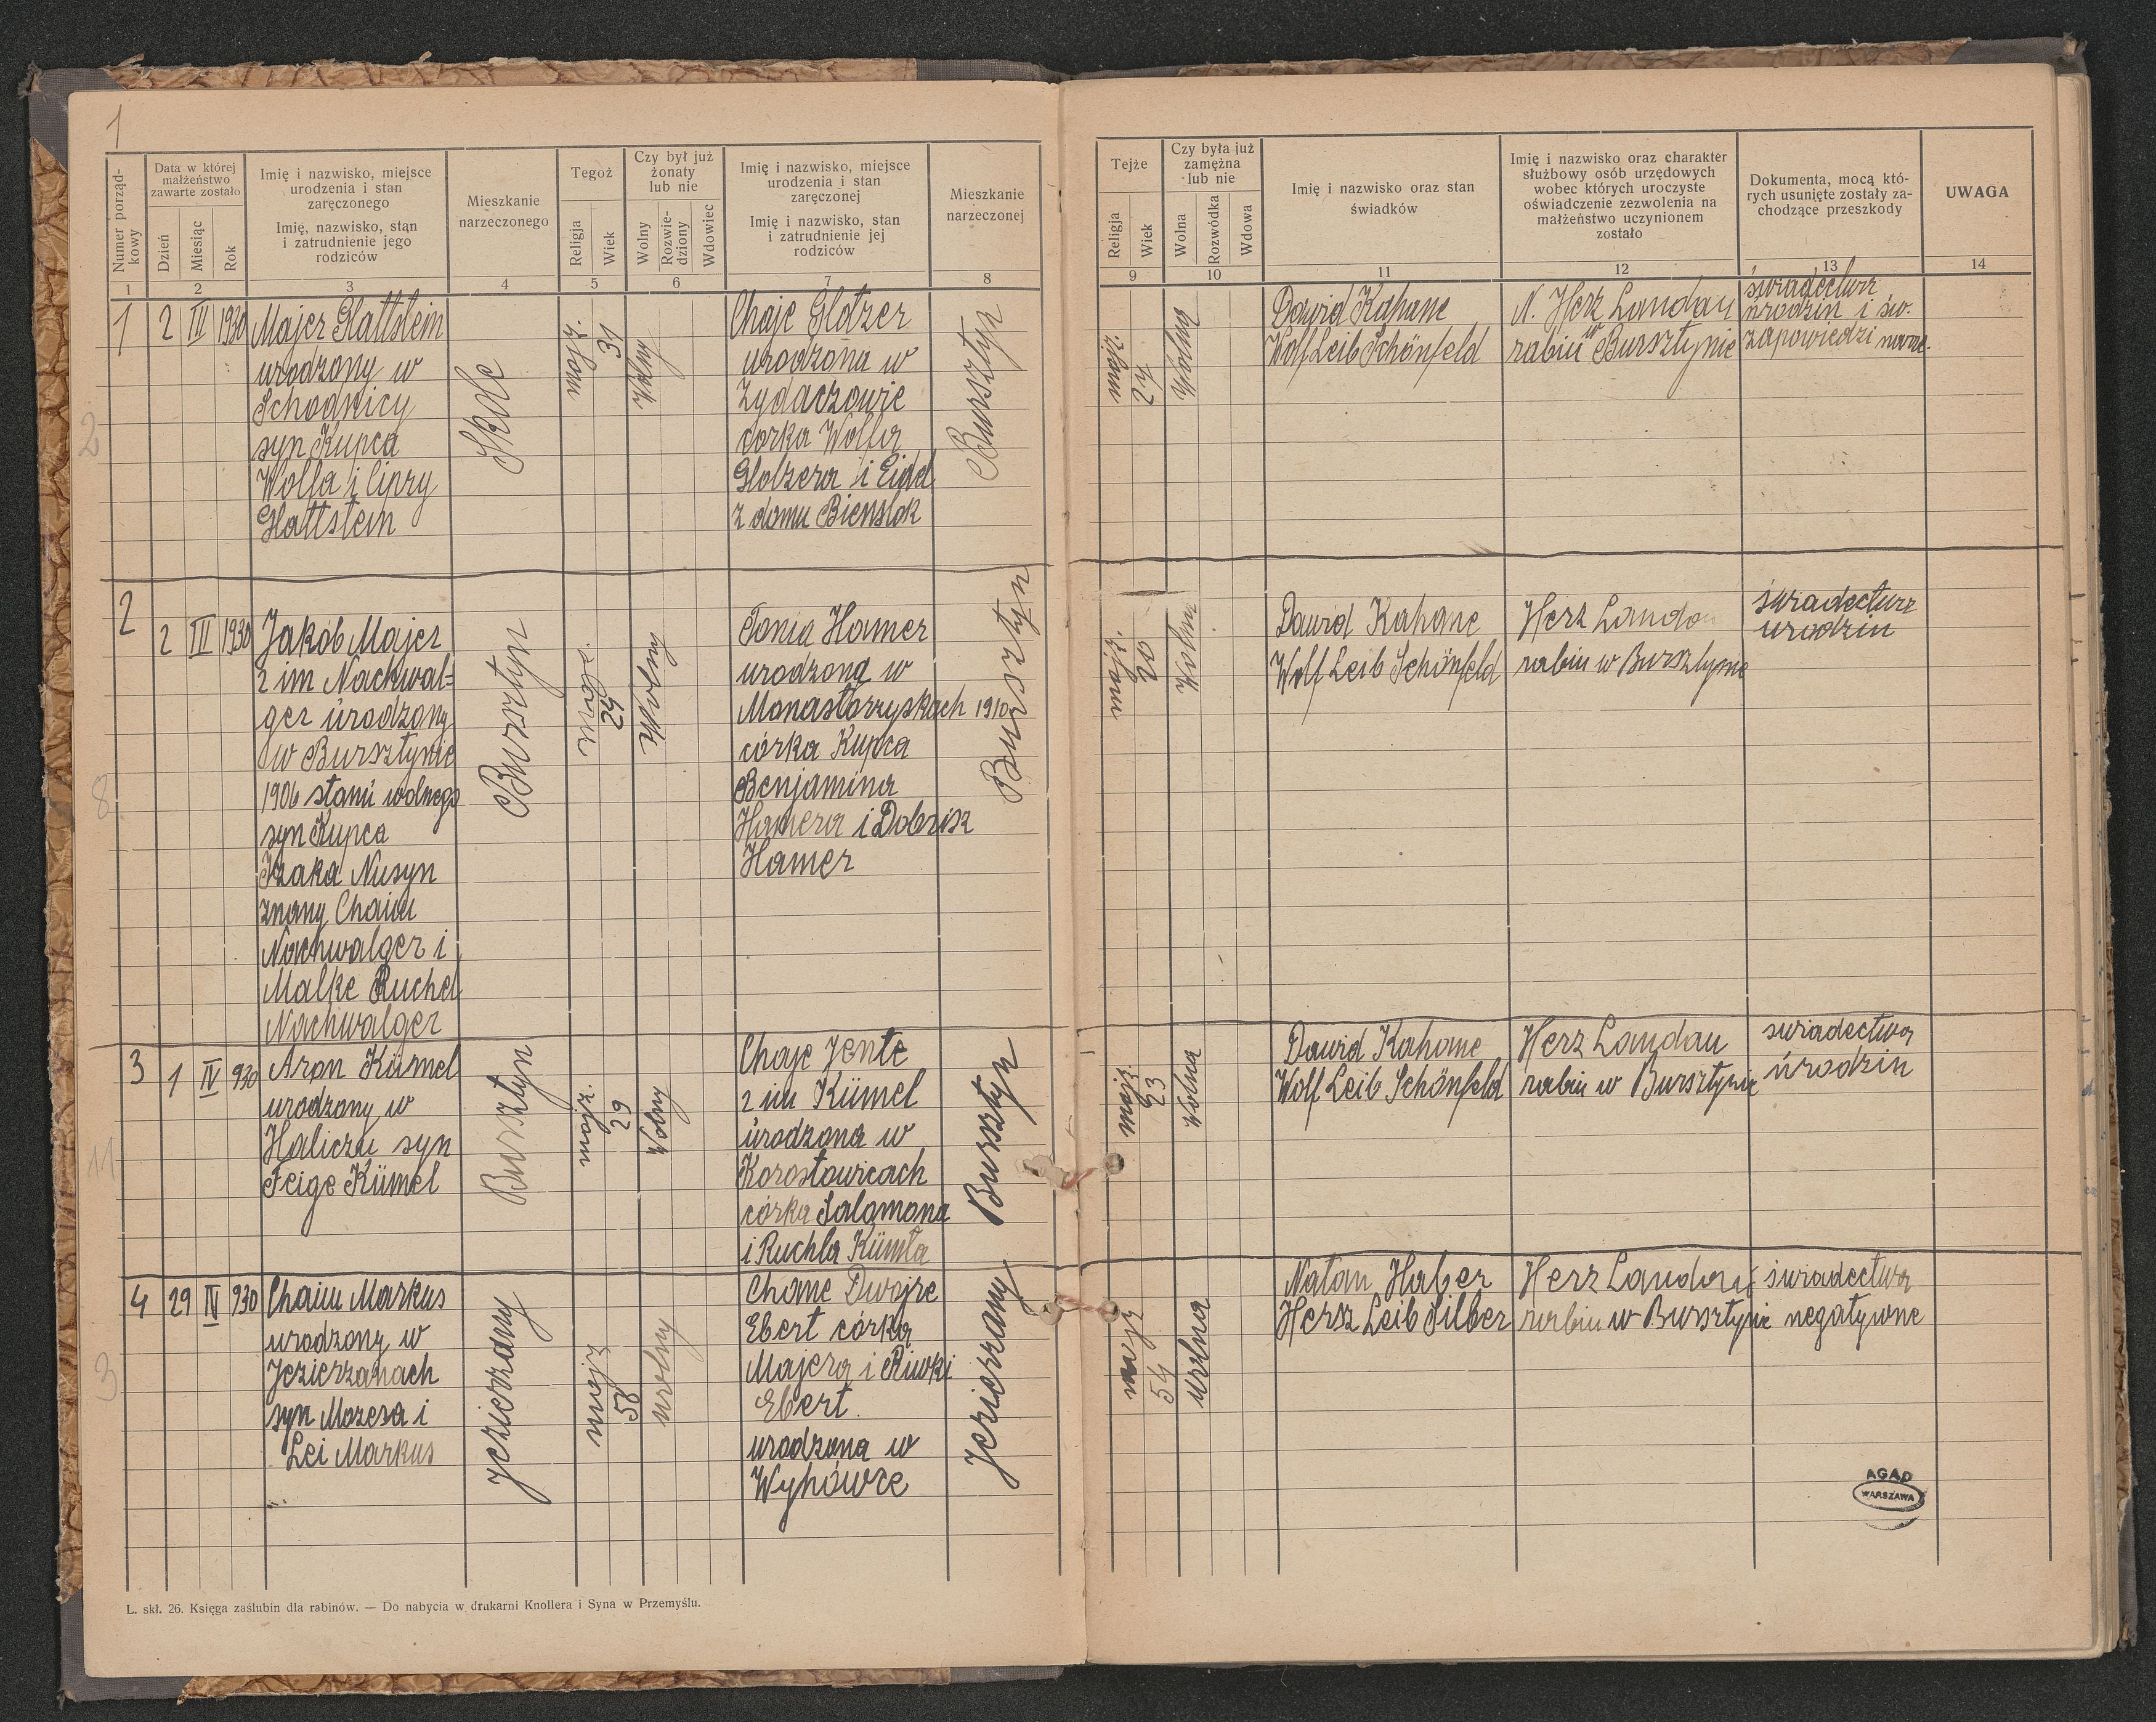 1
Numer porząd-
kowy
Data w której
małżeństwo
zawarte zostało
Dzień
Miesiąc
Rok
Imię i nazwisko, miejsce
urodzenia i stan
zaręczonego
Imię, nazwisko, stan
i zatrudnienie jego
rodziców
Mieszkanie
narzeczonego
Tegoż
Religja
Wiek
Czy był już
żonaty
lub nie
Wolny
Rozwie-
dziony
Wdowiec
Imię i nazwisko, miejsce
urodzenia i stan
zaręczonej
Imię i nazwisko, stan
i zatrudnienie jej
rodziców
Mieszkanie
narzeczonej
Tejże
Religja
Wiek
Czy była już
zamężna
lub nie
Wolna
Rozwódka
Wdowa
Imię i nazwisko oraz stan
świadków
Imię i nazwisko oraz charakter
służbowy osób urzędowych
wobec których uroczyste
oświadczenie zezwolenia na
małżeństwo uczynionem
zostało
Dokumenta, mocą któ-
rych usunięte zostały za-
chodzące przeszkody
UWAGA
1 2 3 4 5 6 7 8 9 10 11 12 13 14
1
2 III 1930
Majer Glattstein
urodzony w
Schodnicy
syn Kupca
Wolfa i Cipry
Glattstein
Skole
mojż.
31
Wolny
Chaje Glotzer
urodzona w
Zydaczowie
corka Wolfa
Glotzera i Eidel
z domu Bienstok
Bursztyn
mojż.
24
Wolna
Dawid Kahane
Wolf Leib Schönfeld
N. Herz Landau
rabin w Bursztynie
świadectwa
urodzin i św.
zapowiedzi
2
2
2 III 1930
Jakób Majer
2 im Nachwal=
ger urodzony
w Bursztynie
1906 stanu wolnego
syn Kupca
Izaka Nusyn
znany Chaim
Nachwalger i
Malke Ruchel
Nachwalger
Bursztyn
24
Wolny
Tonia Hamer
urodzona w
Monasterzyskach 1910
córka Kupca
Benjamina
Hamera i Dobrisz
Hamer
Bursztyn
mojż.
20
Wolna
Dawid Kahane
Wolf Leib Schönfeld
Herz Landau
rabin w Bursztynie
świadectwa
urodzin
8
3
1 IV 930
Aron Kümel
urodzony w
Haliczu syn
Feige Kümel
Bursztyn
mojż.
29
Wolny
Chaje Jente
2 im Kümel
urodzona w
Korostowicach
córka Salamona
i Ruchla Kümla
Bursztyn
mojż.
23
Wolna
Dawid Kahane
Wolf Leib Schönfeld
Herz Landau
rabin w Bursztynie
swiadectwa
urodzin
11
4
29 IV 930
Chaim Markus
urodzony w
Jezierzanach
syn Mozesa i
Lei Markus
Jezierzany
mojż
58
wolny
Chane Dwojre
Ebert córka
Majera i Riwki
Ebert
urodzona w
Wyhówce
Jezierzany
mojż
54
wolna
Natan Haber
Hersz Leib Silber
Herz Landau
rabin w Bursztynie
świadectwa
negatywne
3
AGAD
WARSZAWA
L. skł. 26. Księga zaślubin dla rabinów. — Do nabycia w drukarni Knollera i Syna w Przemyślu.